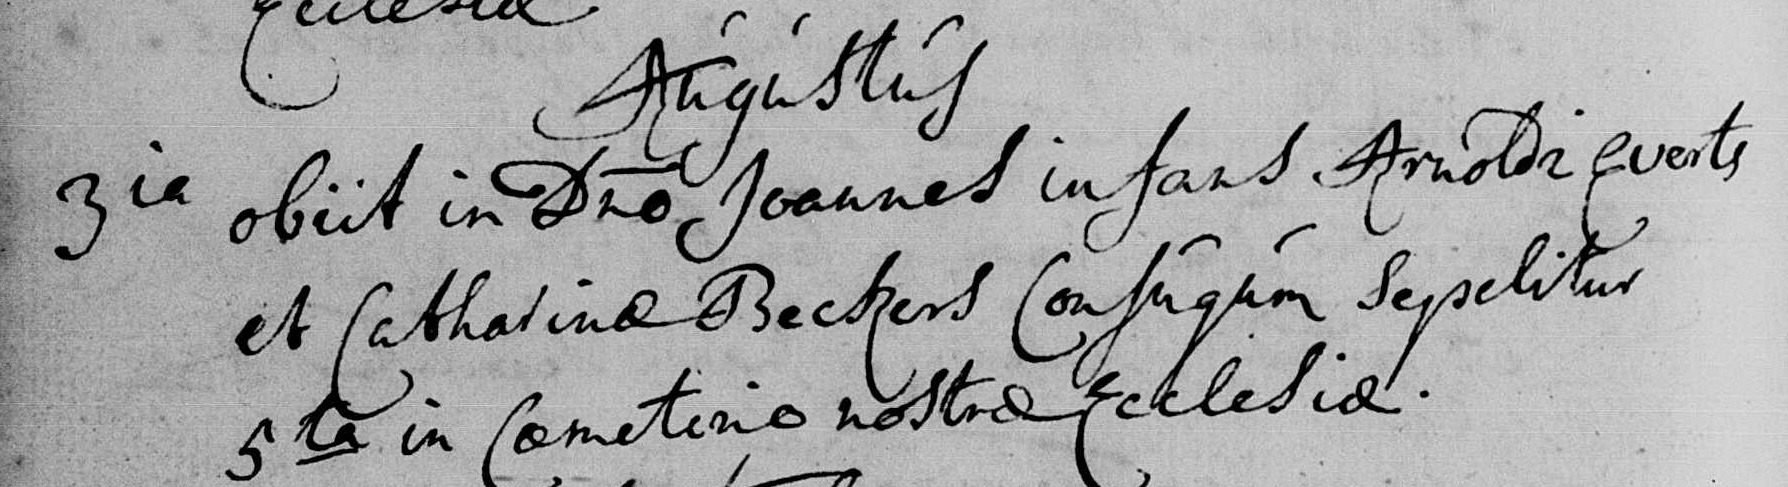 Ecclesiæ
Augustus
3ia obiit in Dno Joannes infans Arnoldi Everts
et Catharinæ Beckers Conjugum sepelitur
5ta in Cœmeterio nostræ Ecclesiæ.